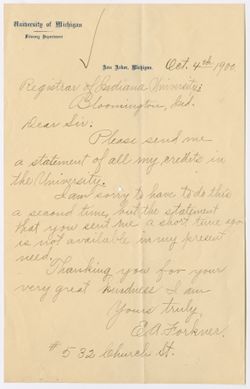 University of Michigan
Literary Department
Ann Arbor, Michigan.
Oct. 4th, 1900.
Registrar of Indiana University,
Bloomington, Ind.
Dear Sir:
Please send me
a statement of all my credits in
the University.
I am sorry to have to do this
a second time, but the statement
that you sent me a short time ago
is not available in my present
need.
Thanking you for your
very great kindness I am
Yours truly,
E. A. Forkner.
# 532 Church St.